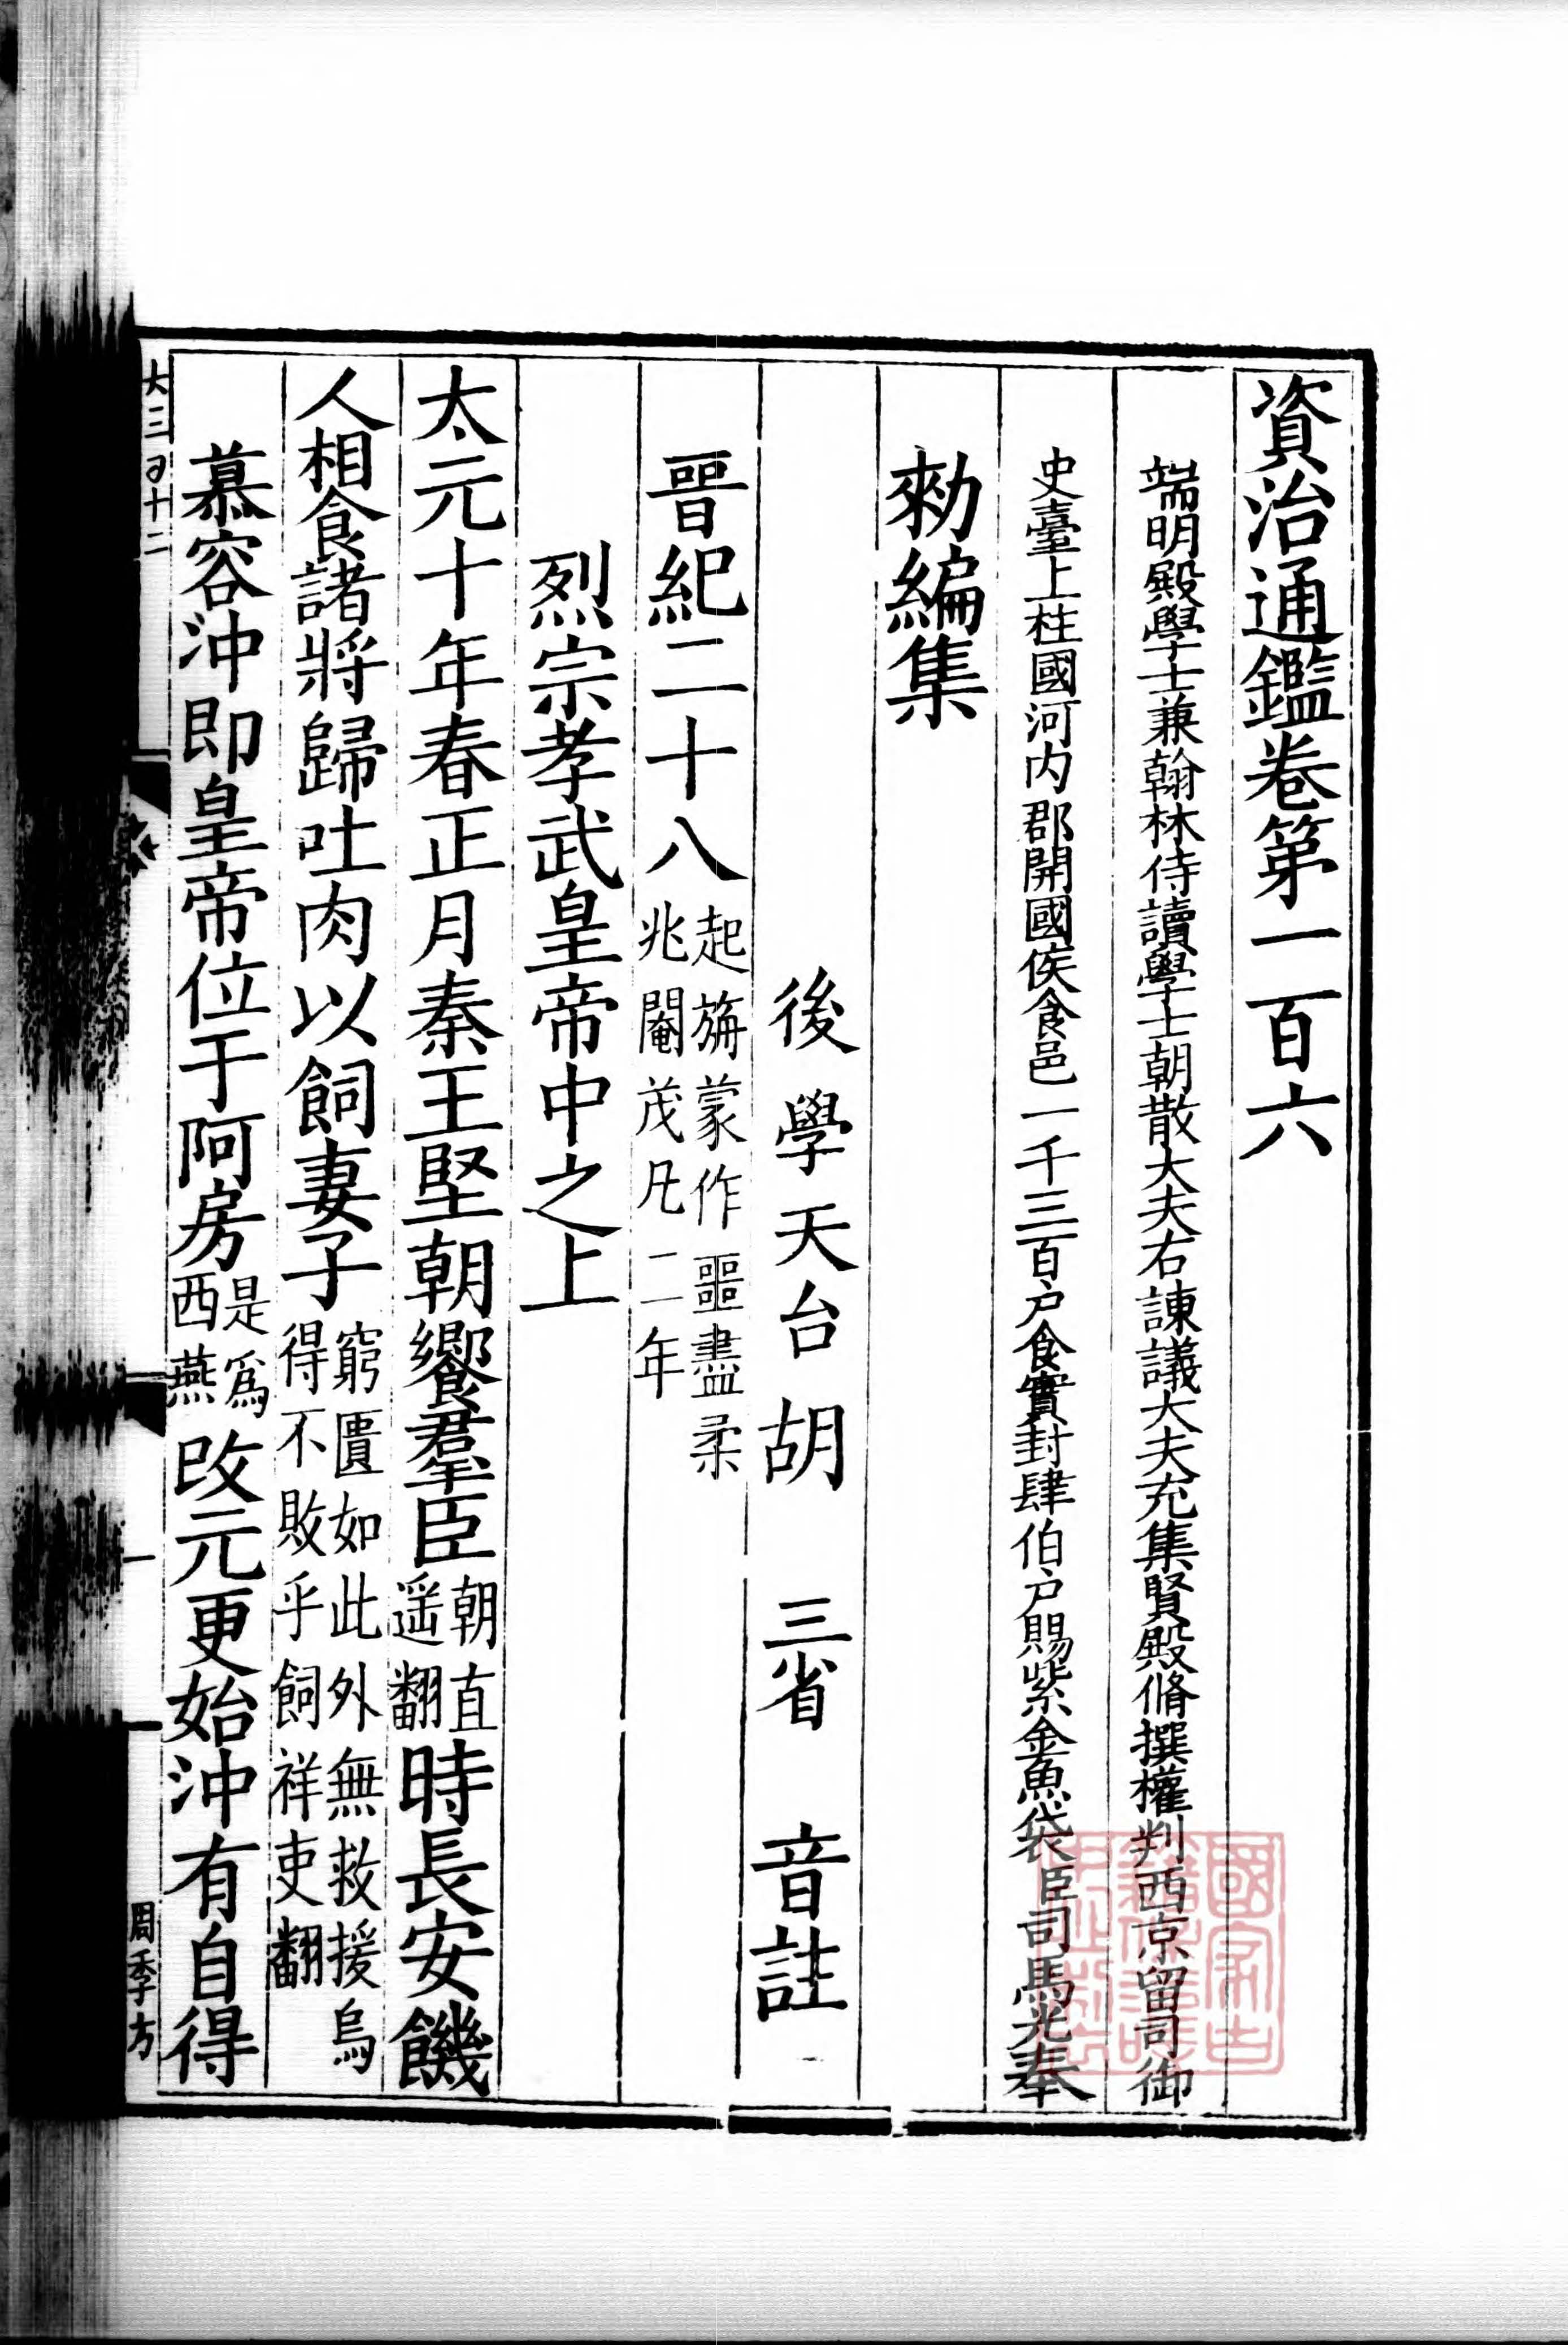 資治通鑑卷第一百六
端明殿學士兼翰林侍讀學士朝散大夫右諫議大夫充集賢殿脩撰權判西京留司御
史臺上柱國河內郡開國侯食邑一千三百户食實封肆伯户賜紫金魚袋臣司馬光奉
勑編集
後學天台胡三省音註
晉紀二十八起旃蒙作噩盡柔兆閹茂凡二年
烈宗孝武皇帝中之上
太元十年春正月秦王堅朝饗羣臣朝直遥翻時長安饑
人相食諸將歸吐肉以飼妻子窮匱如此外無救援烏得不敗乎飼祥吏翻
慕容沖即皇帝位于阿房是爲西燕改元更始沖有自得
大三百十二
周季方